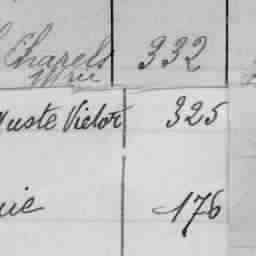 Charels 332
Mrie
uste Victor 325
uie 176